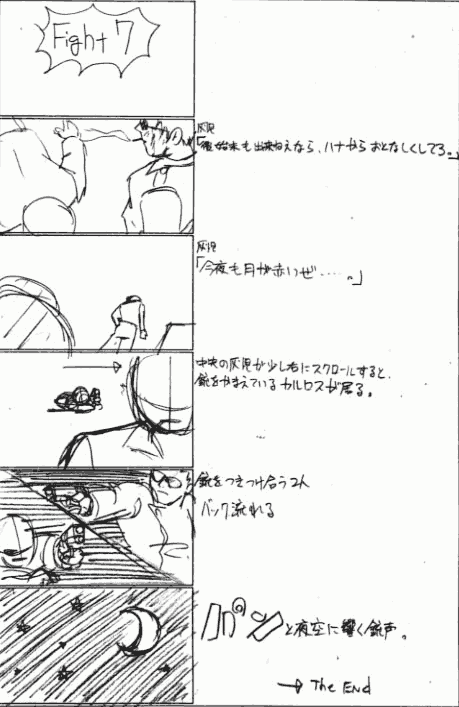 Fight 7
灰児
「後始末も出来ねえなら、ハナからおとなしくしてろ。」
灰児
「今夜も月が赤いぜ……。」
中央の灰児が少し右にスクロールすると、
銃をかまえているカルロスが居る。
銃をつきつけ合う2人
バック流れる
パンと夜空に響く銃声。
→ The End